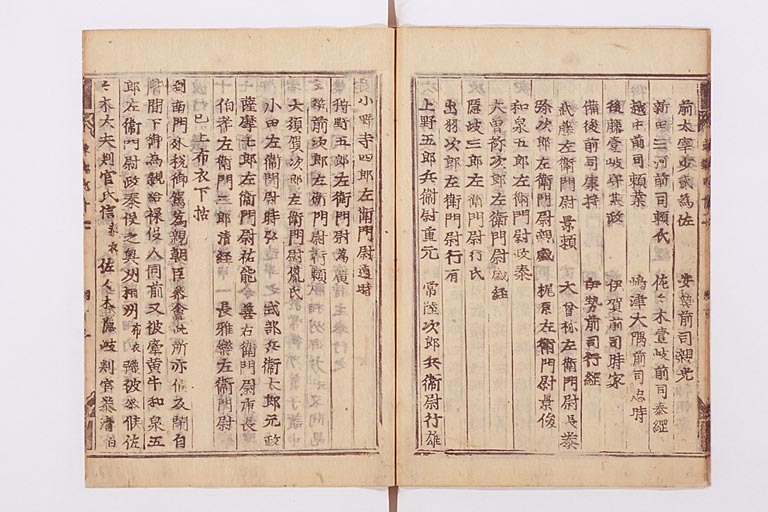 前太宰少貳為佐 安藝前司親光
新田三河前司頼氏 佐々木壹岐前司泰經
越中前司頼業 嶋津大隅前司忠時
後藤壹岐守基政 伊賀前司時家
備後前司康持 伊勢前司行經
武藤左衛門尉景頼 大曾祢左衛門尉長泰
弥次郎左衛門尉親盛 梶原左衛門尉景俊
和泉五郎左衛門尉政泰
大曾祢次郎左衛門尉盛經
隠岐三郎左衛門尉行氏
出羽次郎左衛門尉行有
上野五郎兵衛尉重元 常陸次郎兵衛尉行雄
小野寺四郎左衛門尉通時
狩野五郎左衛門尉為廣
筑前次郎左衛門尉行頼
大須賀次郎左衛門尉胤氏
小田左衛門尉時知 式部兵衛太郎光政
薩摩七郎左衛門尉祐能 善右衛門尉康長
伯耆左衛門三郎清經 長雅樂左衛門尉
已上布衣下括
到南門外程御駕為親朝臣參會此所亦候及閉自
閤下御為親給禄役人
郎左衛門尉政泰役之奥州相州布衣
々木大夫判官氏信 佐々木隠岐判官泰清